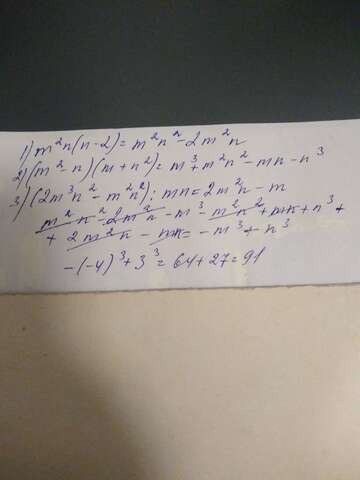 1) m²n(n-2)=m²n²-2m²n
2) (m²-n)(m+n²)=m³+m²n²-mn-n³
3) (2m³n²-m²n²):mn=2m²n-m
m²n²-2m²n-m³-m²n²+mn+n³+
+2m²n-mn=-m³+n³
-(-4)³+3³=64+27=91